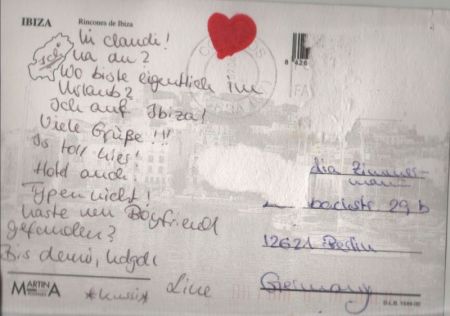 IBIZA
Rincones de Ibiza
Hi Claudi!
Na du?
Wo biste eigentlich im
Urlaub?
Ich auf Ibiza!
Viele Grüße!!!
Is toll hier!
Typen nicht!
haste nen Boyfriend
gefunden?
Bis denni, hdgdl
Line
*kussi*
Ich
MARTINA
29 b
12621 Berlin
Germany